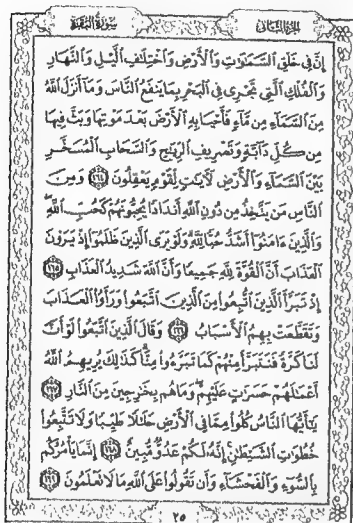 سورة البقرة
الجزء الثاني
إِنَّ فِي خَلْقِ ٱلسَّمَٰوَٰتِ وَٱلْأَرْضِ وَٱخْتِلَٰفِ ٱلَّيْلِ وَٱلنَّهَارِ
وَٱلْفُلْكِ ٱلَّتِي تَجْرِي فِي ٱلْبَحْرِ بِمَا يَنفَعُ ٱلنَّاسَ وَمَآ أَنزَلَ ٱللَّهُ
مِنَ ٱلسَّمَآءِ مِن مَّآءٍ فَأَحْيَا بِهِ ٱلْأَرْضَ بَعْدَ مَوْتِهَا وَبَثَّ فِيهَا
مِن كُلِّ دَآبَّةٍ وَتَصْرِيفِ ٱلرِّيَٰحِ وَٱلسَّحَابِ ٱلْمُسَخَّرِ
بَيْنَ ٱلسَّمَآءِ وَٱلْأَرْضِ لَءَايَٰتٍ لِّقَوْمٍ يَعْقِلُونَ ١٦٤ وَمِنَ
ٱلنَّاسِ مَن يَتَّخِذُ مِن دُونِ ٱللَّهِ أَندَادًا يُحِبُّونَهُمْ كَحُبِّ ٱللَّهِ
وَٱلَّذِينَ ءَامَنُوٓا۟ أَشَدُّ حُبًّا لِّلَّهِ وَلَوْ يَرَى ٱلَّذِينَ ظَلَمُوٓا۟ إِذْ يَرَوْنَ
ٱلْعَذَابَ أَنَّ ٱلْقُوَّةَ لِلَّهِ جَمِيعًا وَأَنَّ ٱللَّهَ شَدِيدُ ٱلْعَذَابِ ١٦٥
إِذْ تَبَرَّأَ ٱلَّذِينَ ٱتُّبِعُوا۟ مِنَ ٱلَّذِينَ ٱتَّبَعُوا۟ وَرَأَوُا۟ ٱلْعَذَابَ
وَتَقَطَّعَتْ بِهِمُ ٱلْأَسْبَابُ ١٦٦ وَقَالَ ٱلَّذِينَ ٱتَّبَعُوا۟ لَوْ أَنَّ
لَنَا كَرَّةً فَنَتَبَرَّأَ مِنْهُمْ كَمَا تَبَرَّءُوا۟ مِنَّا كَذَٰلِكَ يُرِيهِمُ ٱللَّهُ
أَعْمَٰلَهُمْ حَسَرَٰتٍ عَلَيْهِمْ وَمَا هُم بِخَٰرِجِينَ مِنَ ٱلنَّارِ ١٦٧
يَٰٓأَيُّهَا ٱلنَّاسُ كُلُوا۟ مِمَّا فِي ٱلْأَرْضِ حَلَٰلًا طَيِّبًا وَلَا تَتَّبِعُوا۟
خُطُوَٰتِ ٱلشَّيْطَٰنِ إِنَّهُۥ لَكُمْ عَدُوٌّ مُّبِينٌ ١٦٨ إِنَّمَا يَأْمُرُكُم
بِٱلسُّوٓءِ وَٱلْفَحْشَآءِ وَأَن تَقُولُوا۟ عَلَى ٱللَّهِ مَا لَا تَعْلَمُونَ ١٦٩
٢٥